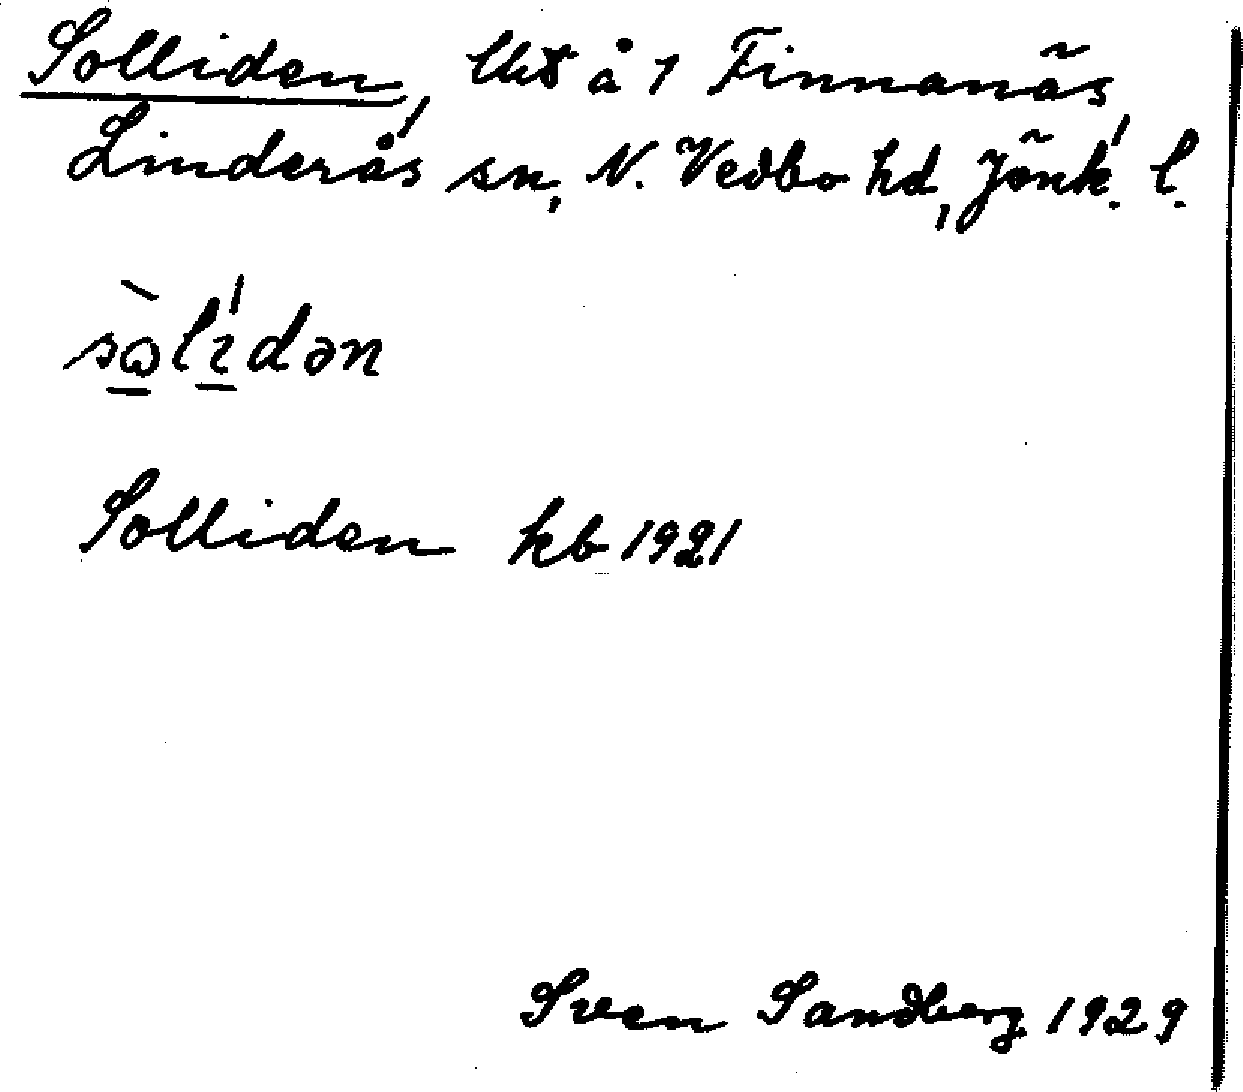 Solliden, lht å 1 Finnanäs
Linderås sn, N. Vedbo hd, Jönk. l.
Solliden kb 1921
Sven Sandberg 1929